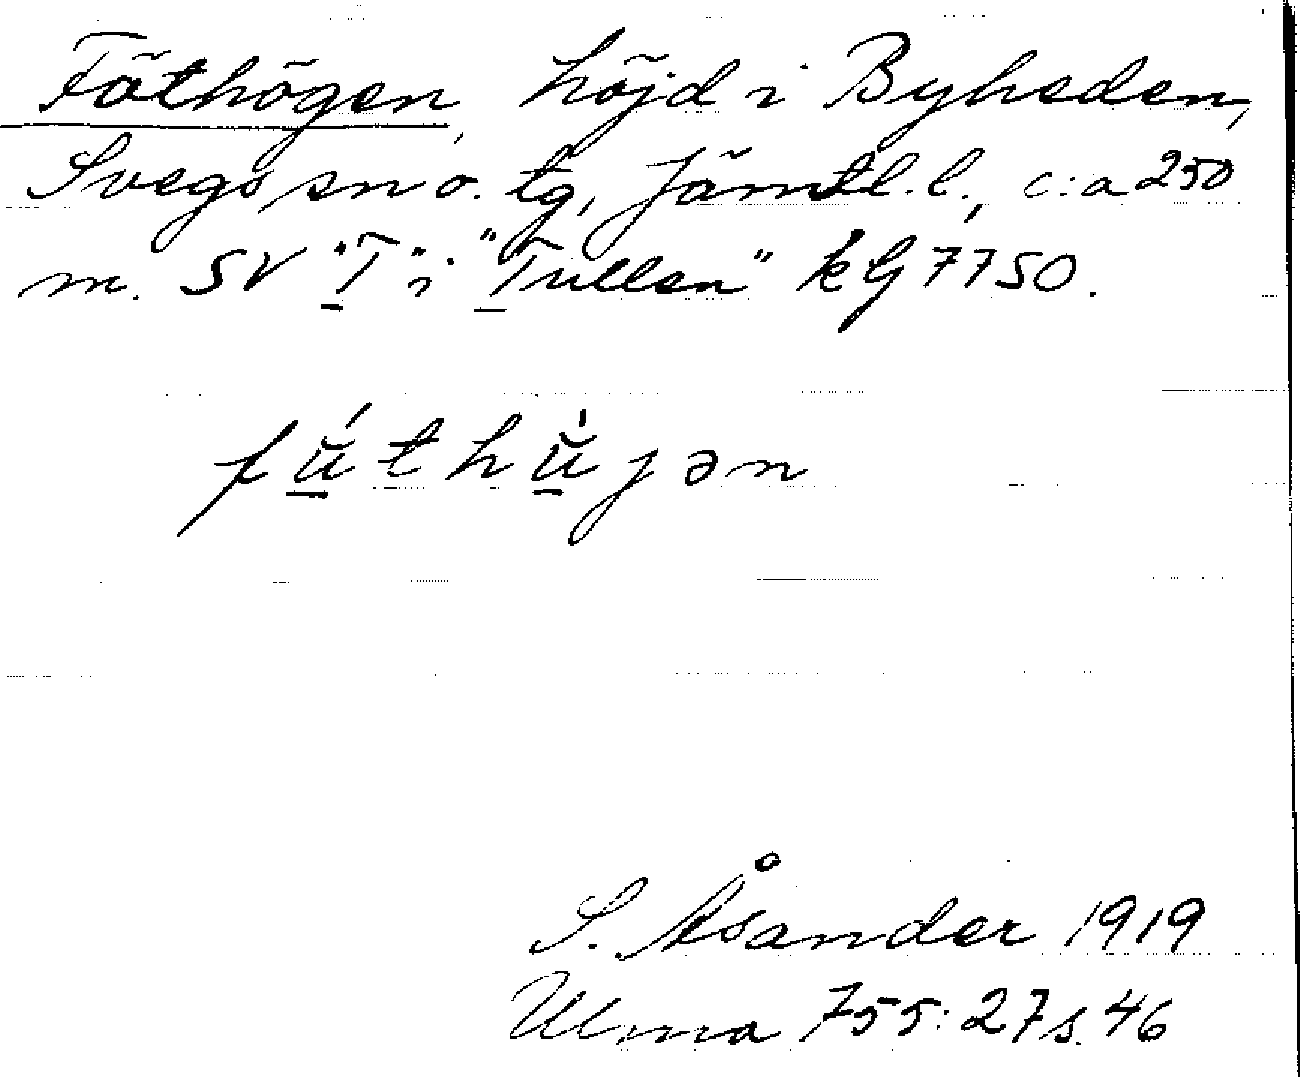 Föthögen, höjd i Byheden,
Svegs sn o. tg, Jämtl. l., c:a 250
m. SV "T" i "Tullen" kG 7750.
fúthújən
S. Åsander 1919
Ulma 755:27 s. 46